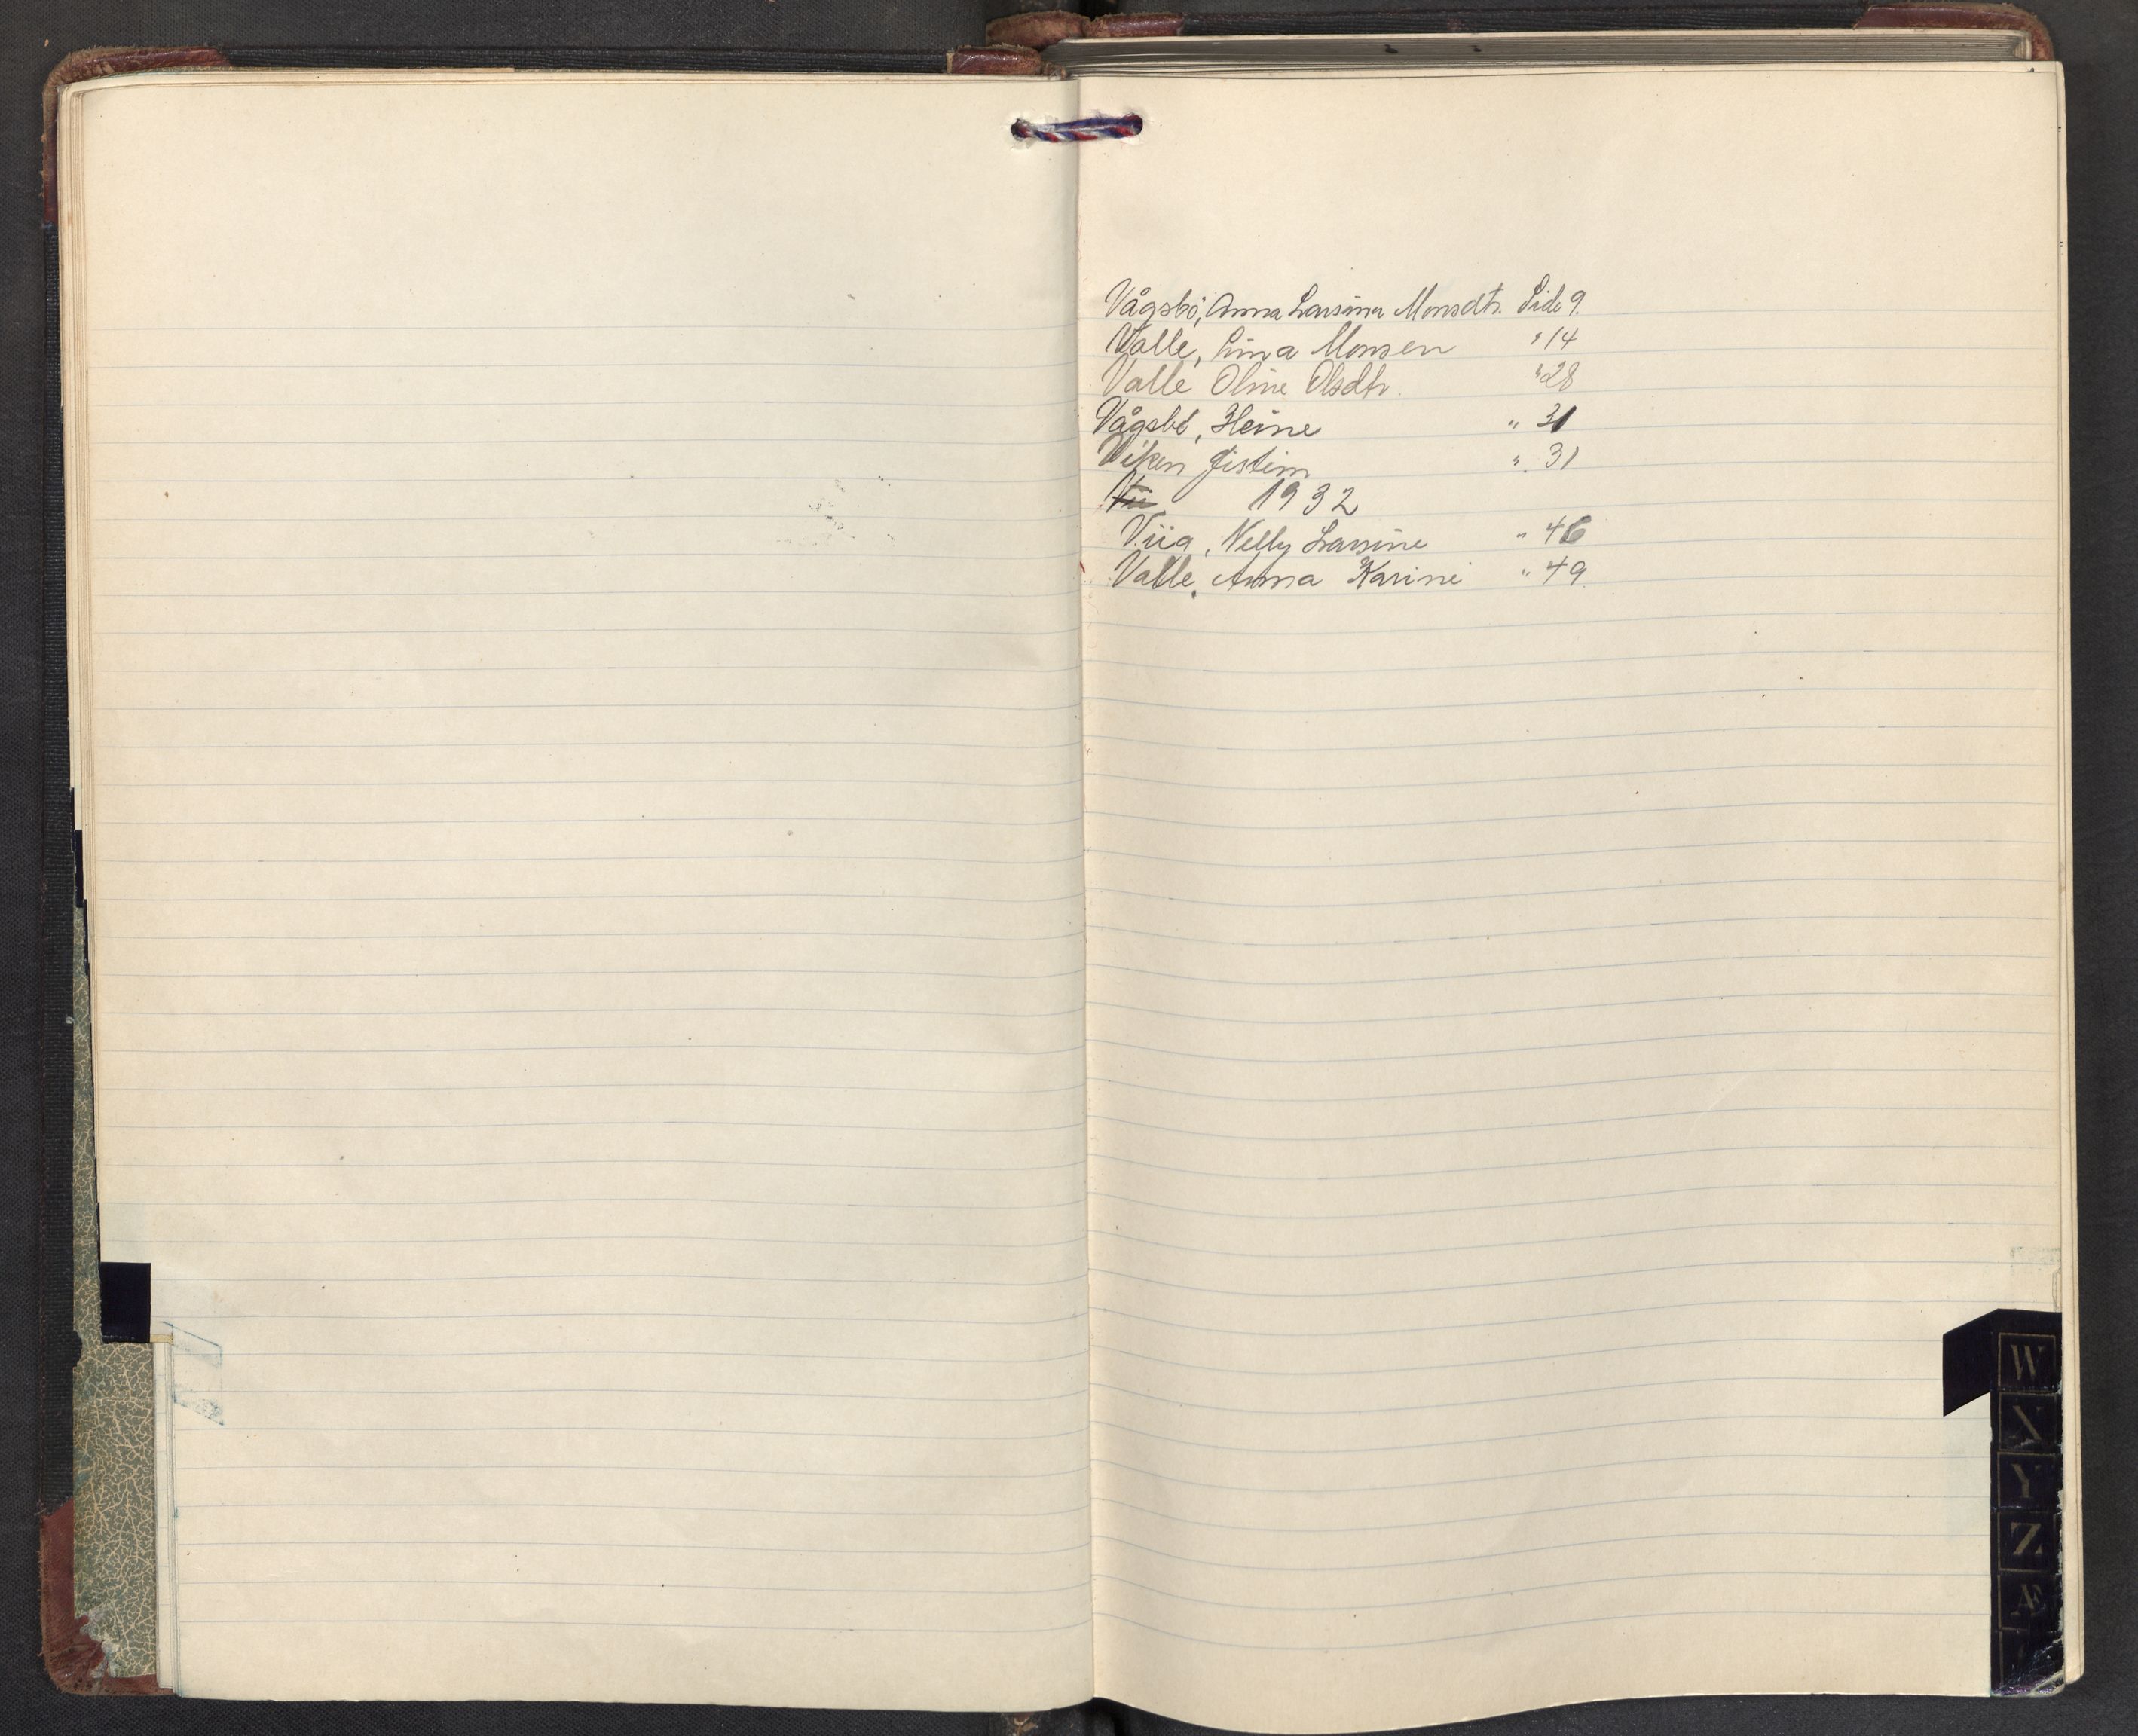 Vågsbö, Anna Larsina Monsdtr. Side 9.
Valle, Lina Monsen " 14
Valle Oline Olsdtr. " 28
Vågsbö, Heine " 31
Viken Jistein " 31
1932
Viig, Nelly Larsine " 46
Valle, Anna Karine " 49
W
X
Y
Z
Æ